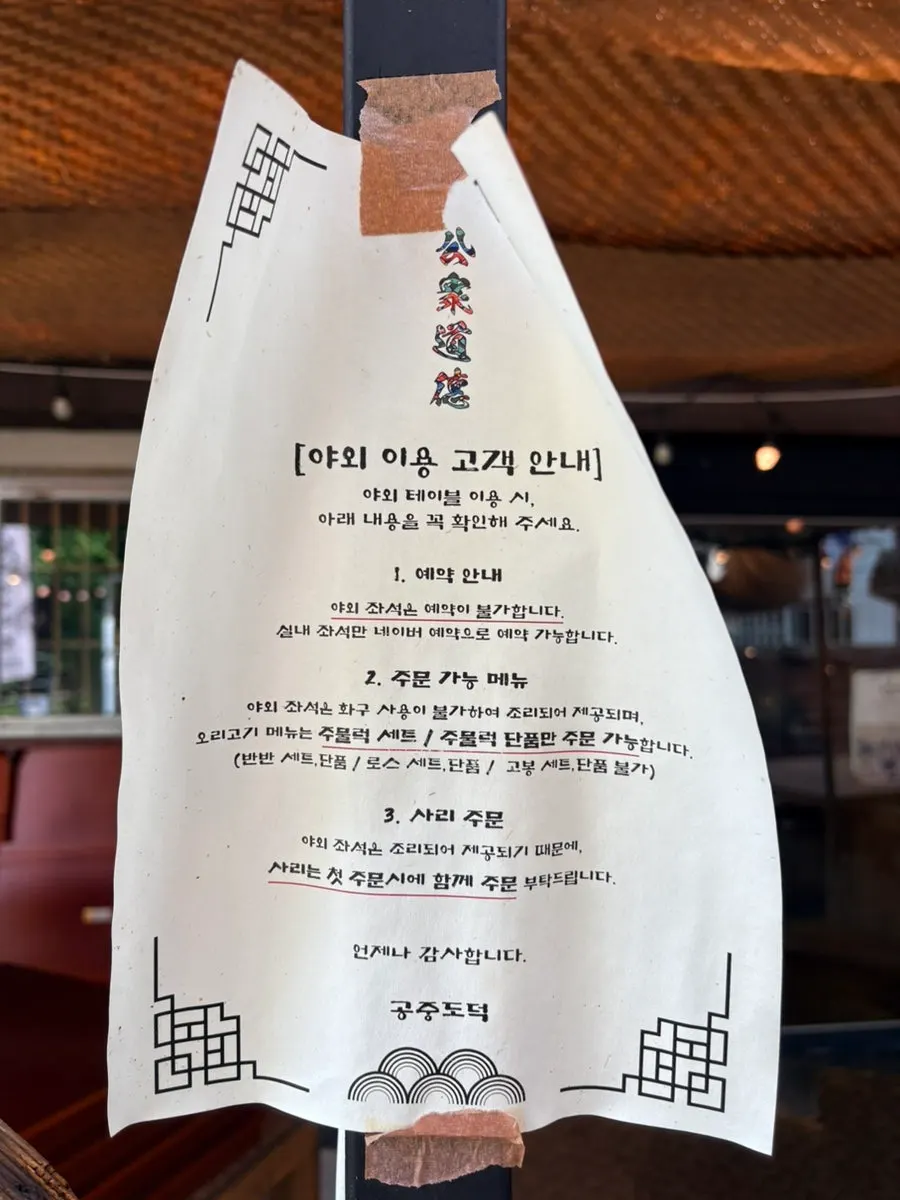 公
衆
道
德
[야외 이용 고객 안내]
야외 테이블 이용 시,
아래 내용을 꼭 확인해 주세요.
1. 예약 안내
야외 좌석은 예약이 불가합니다.
실내 좌석만 네이버 예약으로 예약 가능합니다.
2. 주문 가능 메뉴
야외 좌석은 화구 사용이 불가하여 조리되어 제공되며,
오리고기 메뉴는 주물럭 세트 / 주물럭 단품만 주문 가능합니다.
(반반 세트,단품 / 로스 세트,단품 / 고봉 세트,단품 불가)
3. 사리 주문
야외 좌석은 조리되어 제공되기 때문에,
사리는 첫 주문시에 함께 주문 부탁드립니다.
언제나 감사합니다.
공중도덕